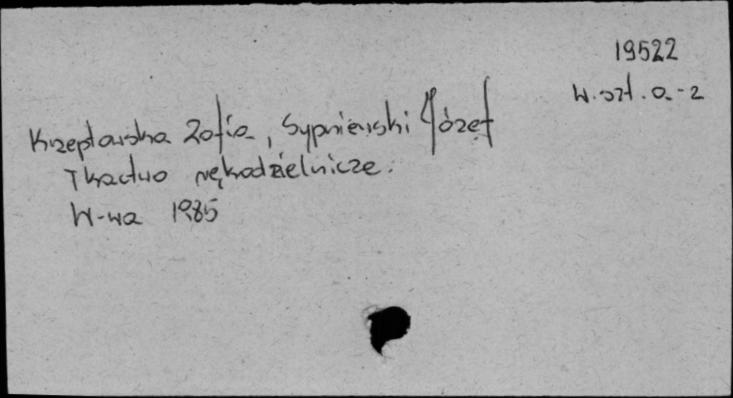 19522
W. szt. a-z
Krzeptowska Zofia, Sypniewski Józef
Tkactwo rękodzielnicze.
W-wa 1985